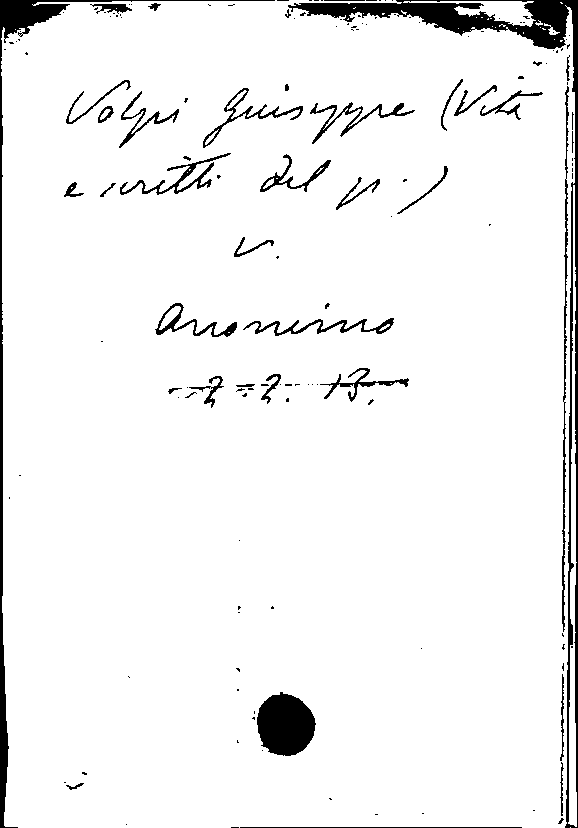 Volpi Giuseppe (Vita
e scritti del p.)
v.
Anonimo
2-2. 13.